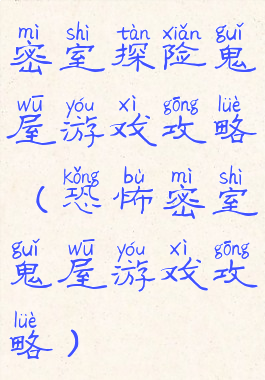 mì shì tàn xiǎn guǐ
密室探险鬼
wū yóu xì gōng lüè
屋游戏攻略
kǒng bù mì shì
（恐怖密室
guǐ wū yóu xì gōng
鬼屋游戏攻
lüè
略）